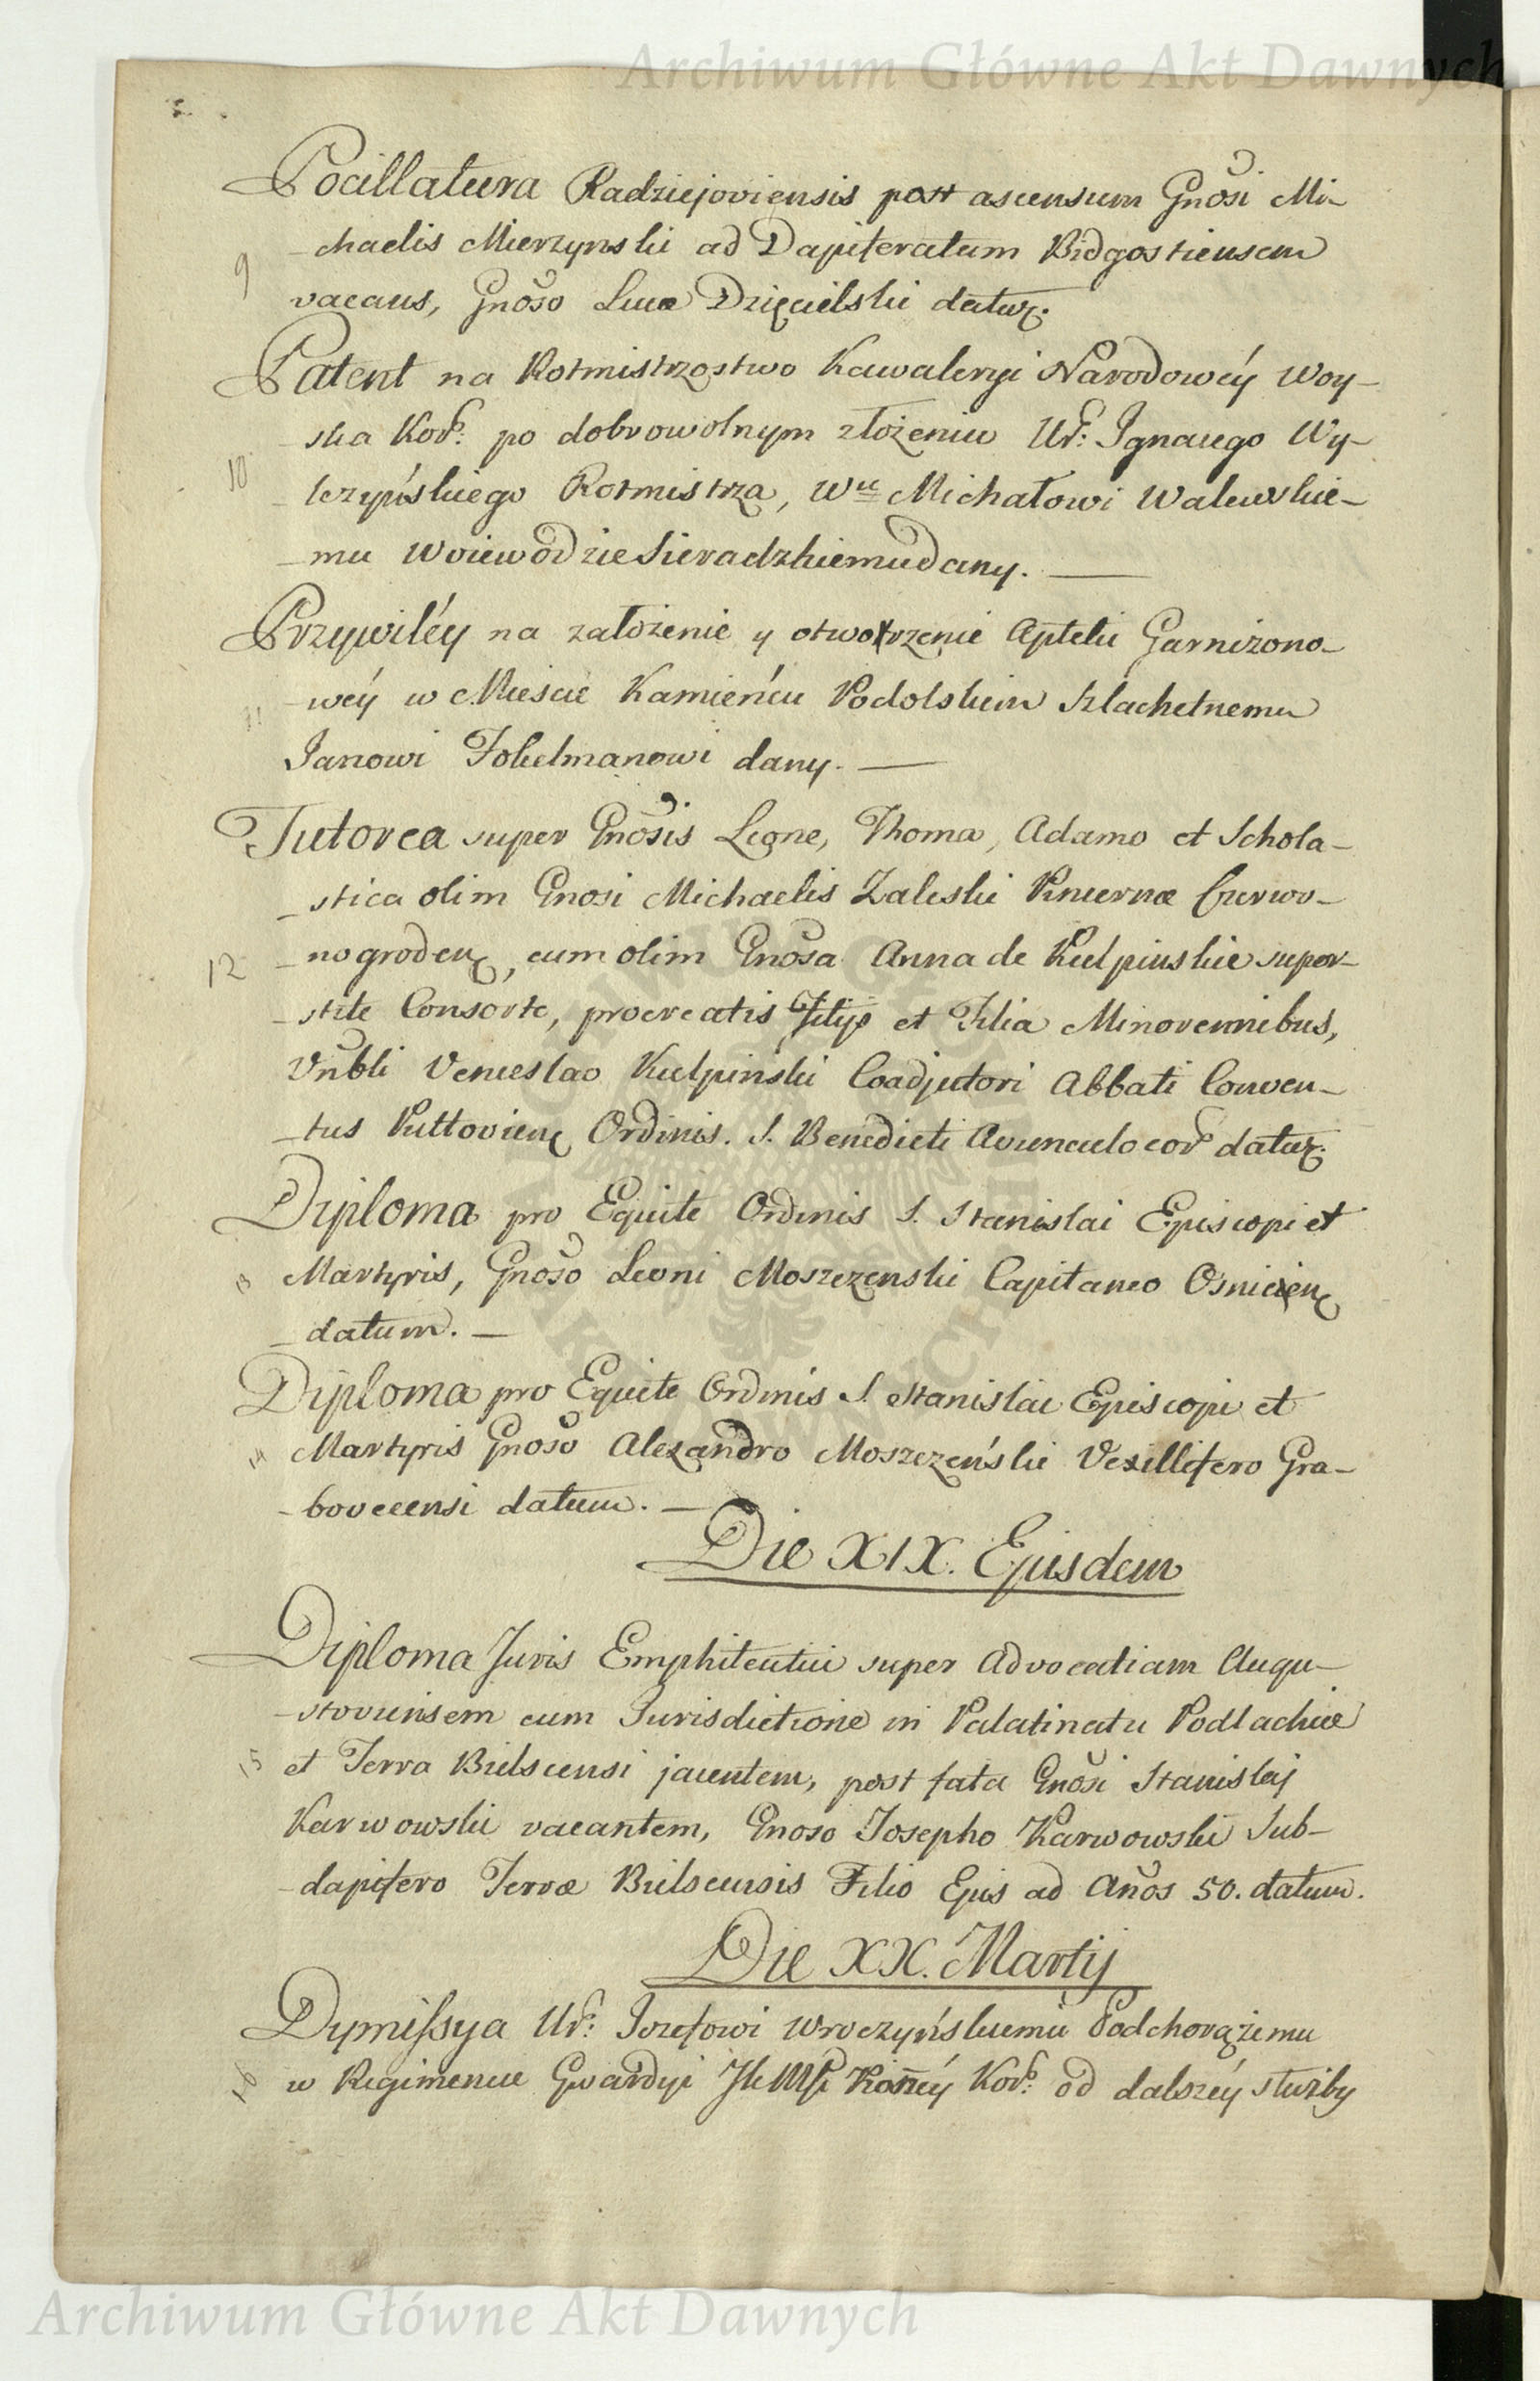 Archiwum Główne Akt Dawnych
Pocillatura Radziejoviensis post ascensum Gnosi Mi-
-chaelis Mierzynski ad Dapiferatum Bidgostiensem
9
vacans, Gnoso Luca Dzięcielski datur.
Patent na Rotmistrzostwo Kawaleryi Narodowéy Woy-
ska Kor: po dobrowolnym złożeniu Ur: Ignacego Wy-
10
-lczyńskiego Rotmistrza, Wu Michałowi Walewskie-
-mu Woiewodzie Sieradzkiemu dany. —
Przywiléy na założenie y otworzenie Apteki Garnizono-
11
-wéy w Mieście Kamieńcu Podolskim Szlachetnemu
Janowi Fokelmanowi dany. —
Tutorea super Gnosis Leone, Thoma, Adamo et Schola-
-stica olim Gnosi Michaelis Zaleski Pincernæ Czerwo-
12
-nogroden, cum olim Gnosa Anna de Kielpinskie super-
-stite Consorte, procreatis Filijs et Filia Minorennibus,
Vnbli Venceslao Kielpinski Coadjutori Abbati Conven-
-tus Pultovien Ordinis. S. Benedicti Avunculo eor datur.
Diploma pro Equite Ordinis S. Stanislai Episcopi et
13
Martyris, Gnoso Leoni Moszczenski Capitaneo Osnicien
-datum. —
Diploma pro Equite Ordinis S. Stanislai Episcopi et
14
Martyris Gnoso Alexandro Moszczeński Vexillifero Gra-
-bovecensi datum. —
Die XIX. Ejusdem
Diploma Juris Emphiteutici super Advocatiam Augu-
-stoviensem cum Jurisdictione in Palatinatu Podlachiæ
15
et Terra Bielscensi jacentem, post fata Gnosi Stanislaj
Karwowski vacantem, Gnoso Josepho Karwowski Sub-
-dapifero Terræ Bielscensis Filio Ejus ad Anos 50. datum.
Die XX. Martij
Dymissya Ur: Jozefowi Wroczyńskiemu Podchorążemu
16
w Regimencie Gwardyi JKMści Konnéy Kor: od dalszéy służby
Archiwum Główne Akt Dawnych